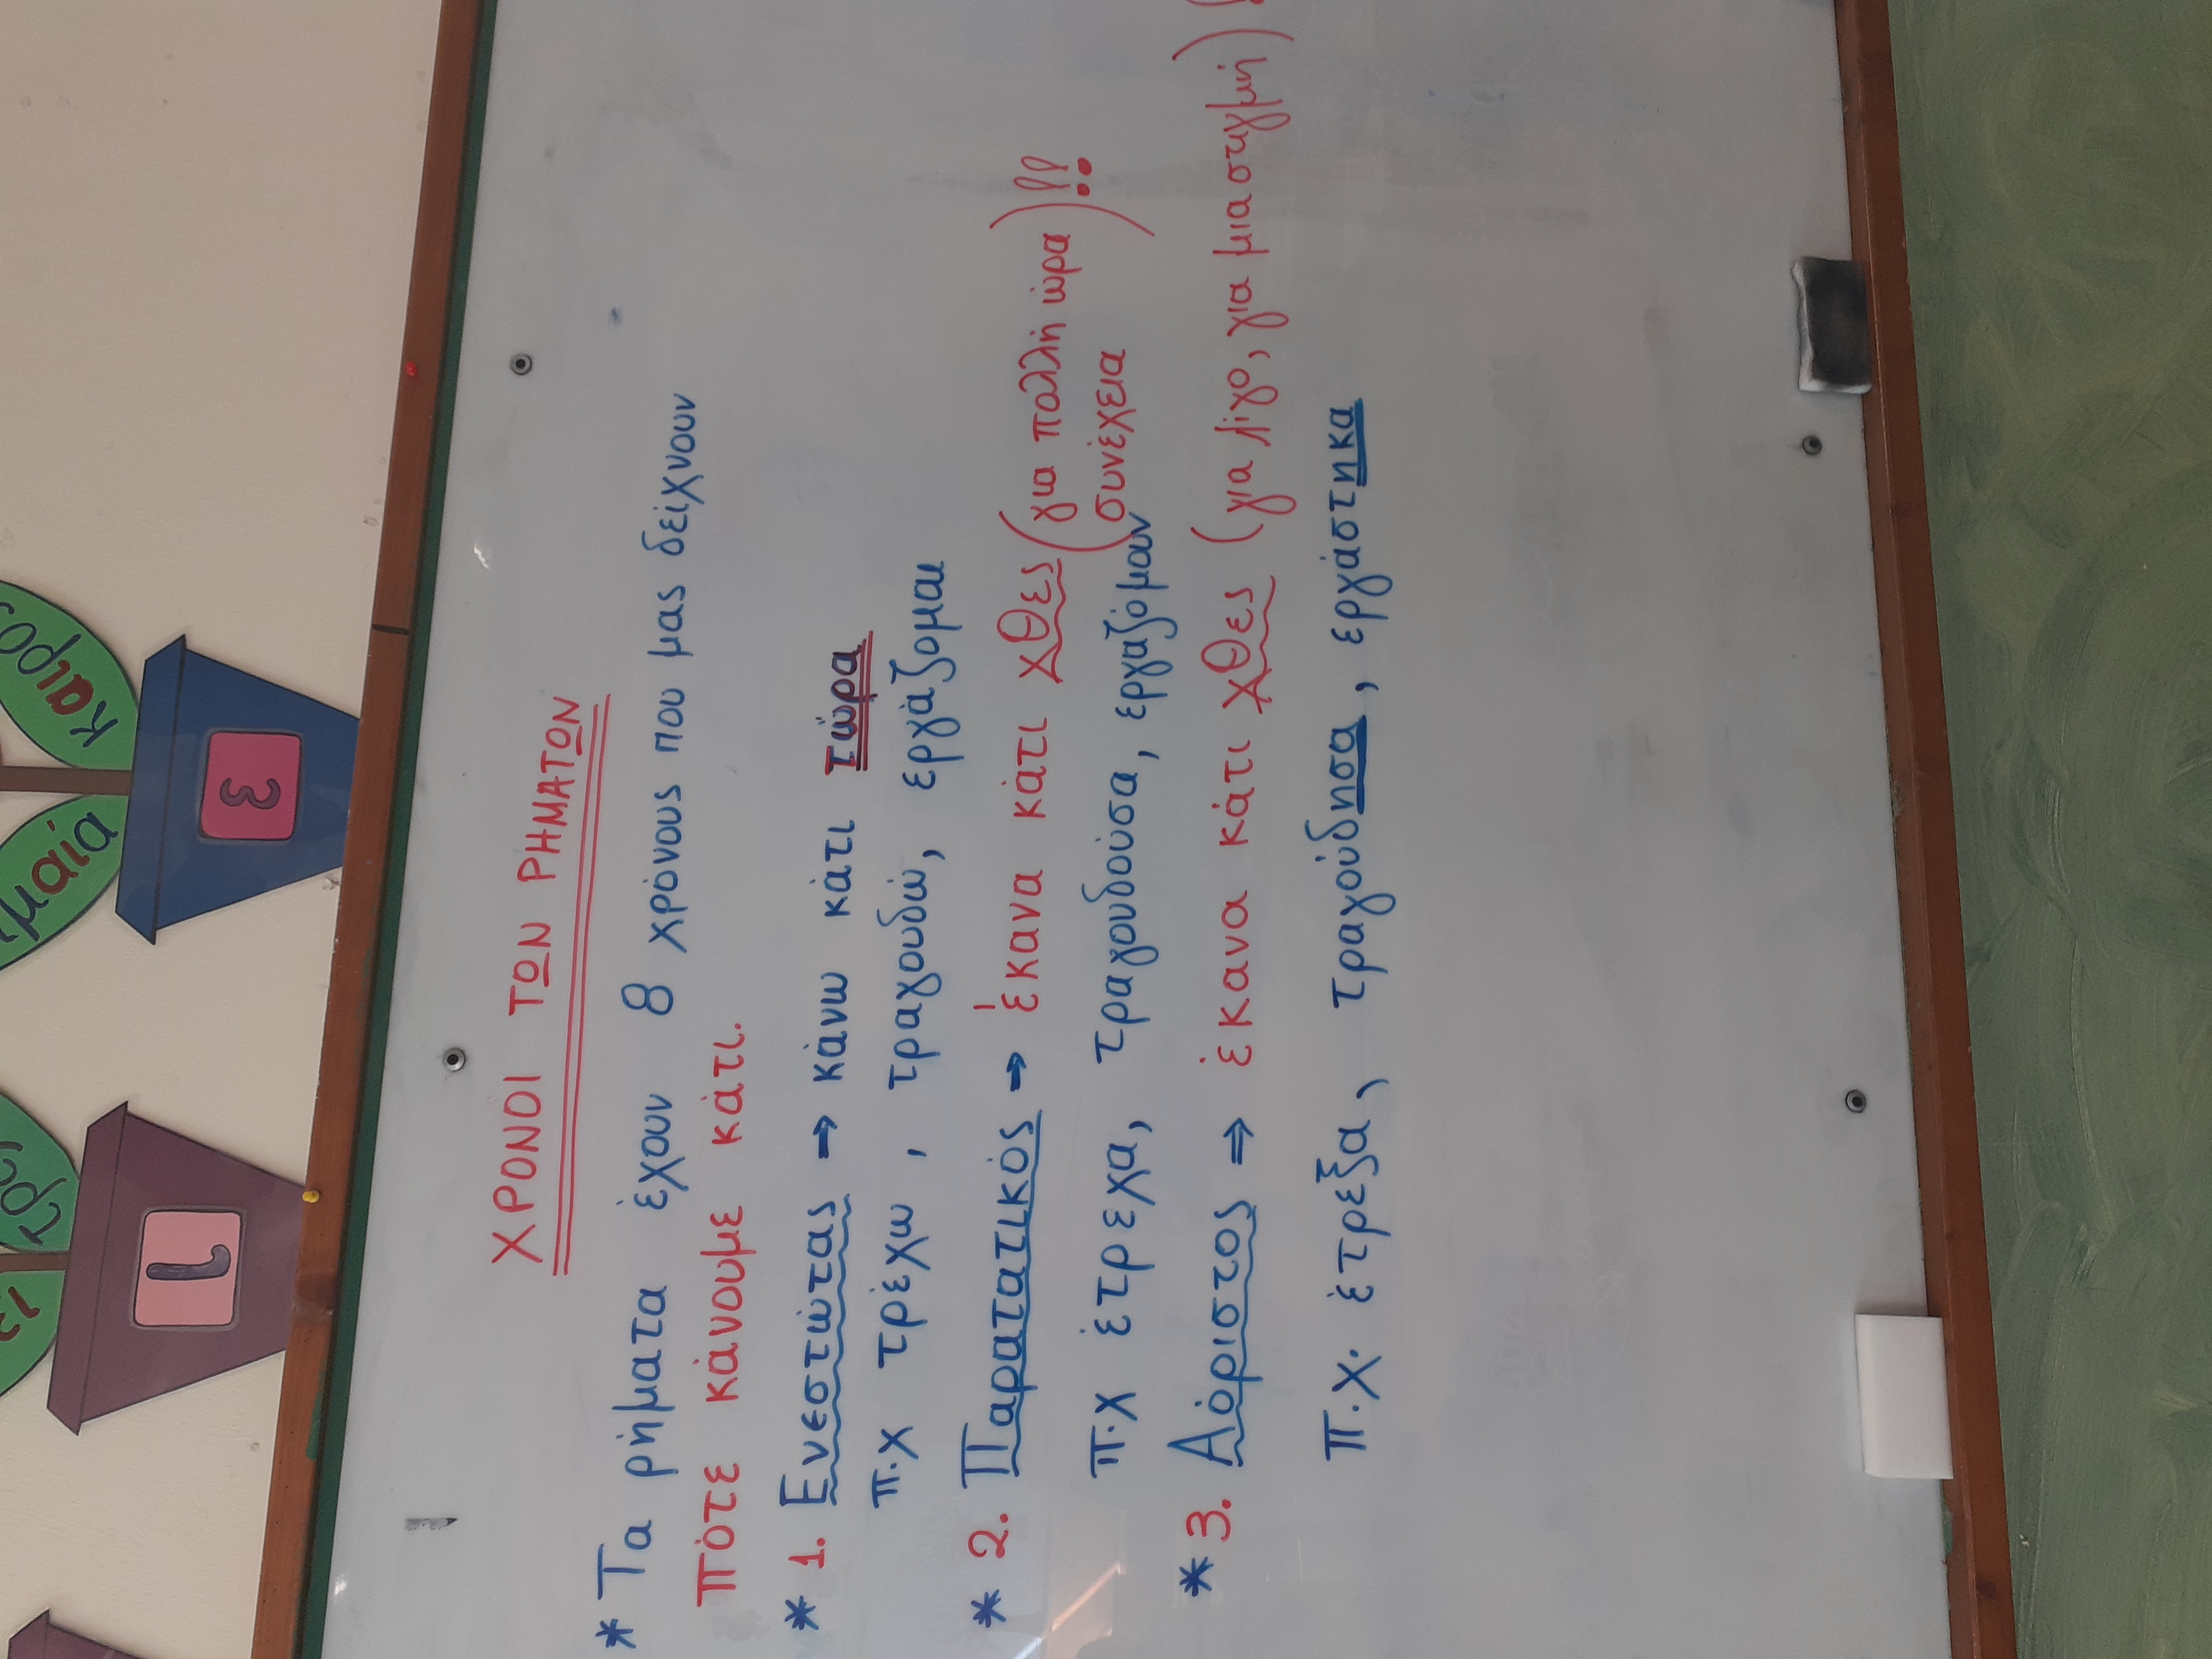 ΧΡΟΝΟΙ ΤΩΝ ΡΗΜΑΤΩΝ
* Τα ρήματα έχουν 8 χρόνους που μας δείχνουν
πότε κάνουμε κάτι.
* 1. Ενεστώτας → κάνω κάτι τώρα
π.χ τρέχω, τραγουδώ, εργάζομαι
* 2. Παρατατικός → έκανα κάτι χθες (για πολλή ώρα)!!
συνέχεια
π.χ έτρεχα, τραγουδούσα, εργαζόμουν
* 3. Αόριστος ⇒ έκανα κάτι χθες (για λίγο, για μια στιγμή)
π.χ. έτρεξα, τραγούδησα, εργάστηκα
ι
3
καιρός